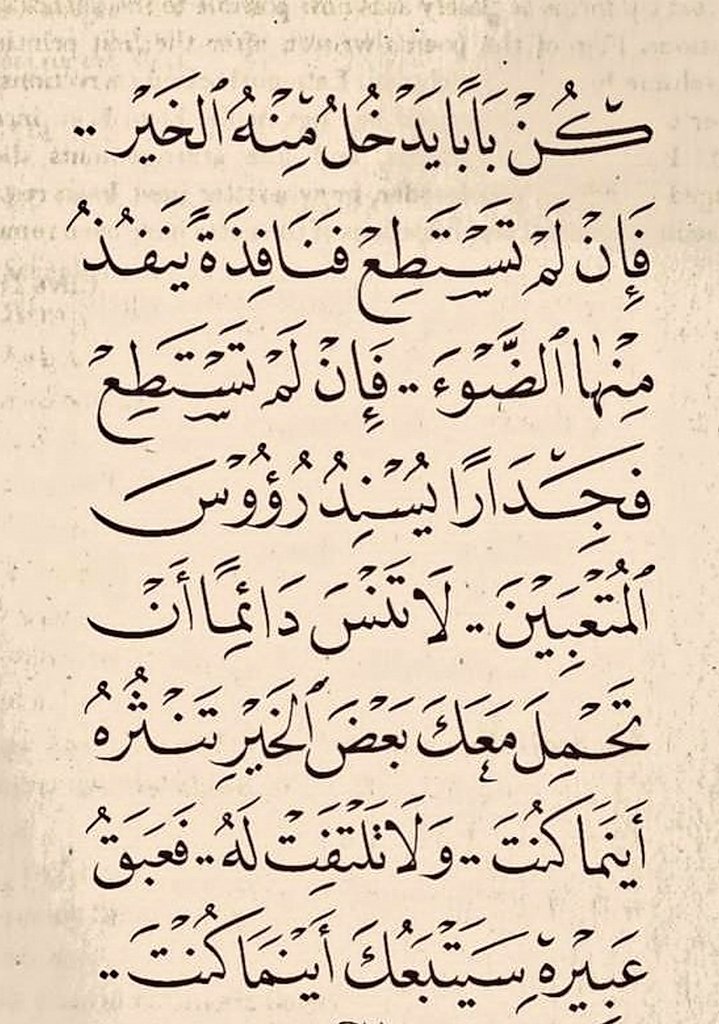 كُنْ بَابًا يَدْخُلُ مِنْهُ ٱلخَيْر ..
فَإِنْ لَمْ تَسْتَطِعْ فَنَافِذَةً يَنفُذُ
مِنْهَا ٱلضَّوْءَ .. فَإِنْ لَمْ تَسْتَطِعْ
فَجِدَارًا يُسْنِدُ رُؤُوْسَ
ٱلمُتْعَبِيْنَ .. لَا تَنْسَ دَائِمًا أَنْ
تَحْمِلَ مَعَكَ بَعْضَ ٱلخَيْرِ تَنْثُرهُ
أَينَمَا كُنْتَ .. وَلَا تَلْتَفِتْ لَهُ .. فَعَبَقُ
عَبِيْرِهِ سَيَتْبَعُكَ أَيْنَمَا كُنْتَ ..